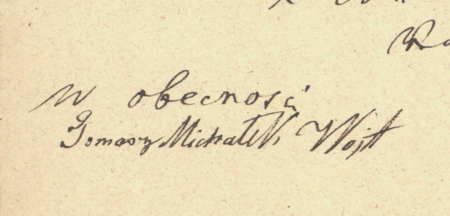 w obecności
Tomasz Michałek Wójt